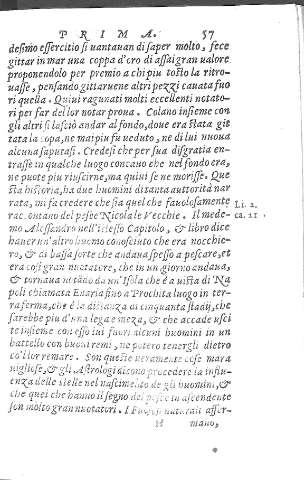 PRIMA. 57
desimo essercitio si uantauan di saper molto, fece
gittar in mar una coppa d'oro di assai gran ualore
proponendolo per premio a chi piu tosto la ritro-
uasse, pensando gittaruene altri pezzi cauata fuo
ri quella. Quiui ragunati molti eccellenti notato-
ri per far dellor notar proua. Colano insieme con
gli altri si lasciò andar al fondo, doue era stata git
tata la copa, ne mai piu fu ueduto, ne di lui nuoua
alcuna saputasi. Credesi che per sua disgratia en-
trasse in qualche luogo concauo che nel fondo era,
ne puote piu riuscirne, ma quiui se ne morisse. Que
sta historia, ha due huomini di tanta auttorità nar
rata, mi fa credere che sia quel che fauolosamente Li. 2.
raccontano del pesce Nicola le Vecchie. Il mede- ca. 21
mo Alessandro nell'istesso Capitolo, & libro dice
hauer un'altro huomo conosciuto che era nocchie-
ro, & di bassa sorte che andaua spesso a pescare, et
era cosi gran nuotatore, che in un giorno andaua,
& tornaua notãdo da un'Isola che è a uista di Na
poli chiamata Enaria fino a Prochita luogo in ter-
ra ferma, che è la distanza di cinquanta stadij, che
sarebbe piu d'una lega e meza, & che accade usci
te insieme con esso lui fuori alcuni huomini in un
battello con buoni remi, ne potero tenergli dietro
co'llor remare. Son queste ueramente cose mara
uigliose, & gli Astrologi dicono procedere la influ-
enza delle stelle nel nascimento de gli huomini, &
che quei che hanno il segno del pesce in ascendente
son molto gran nuotatori. I naturali affer-
H mano,